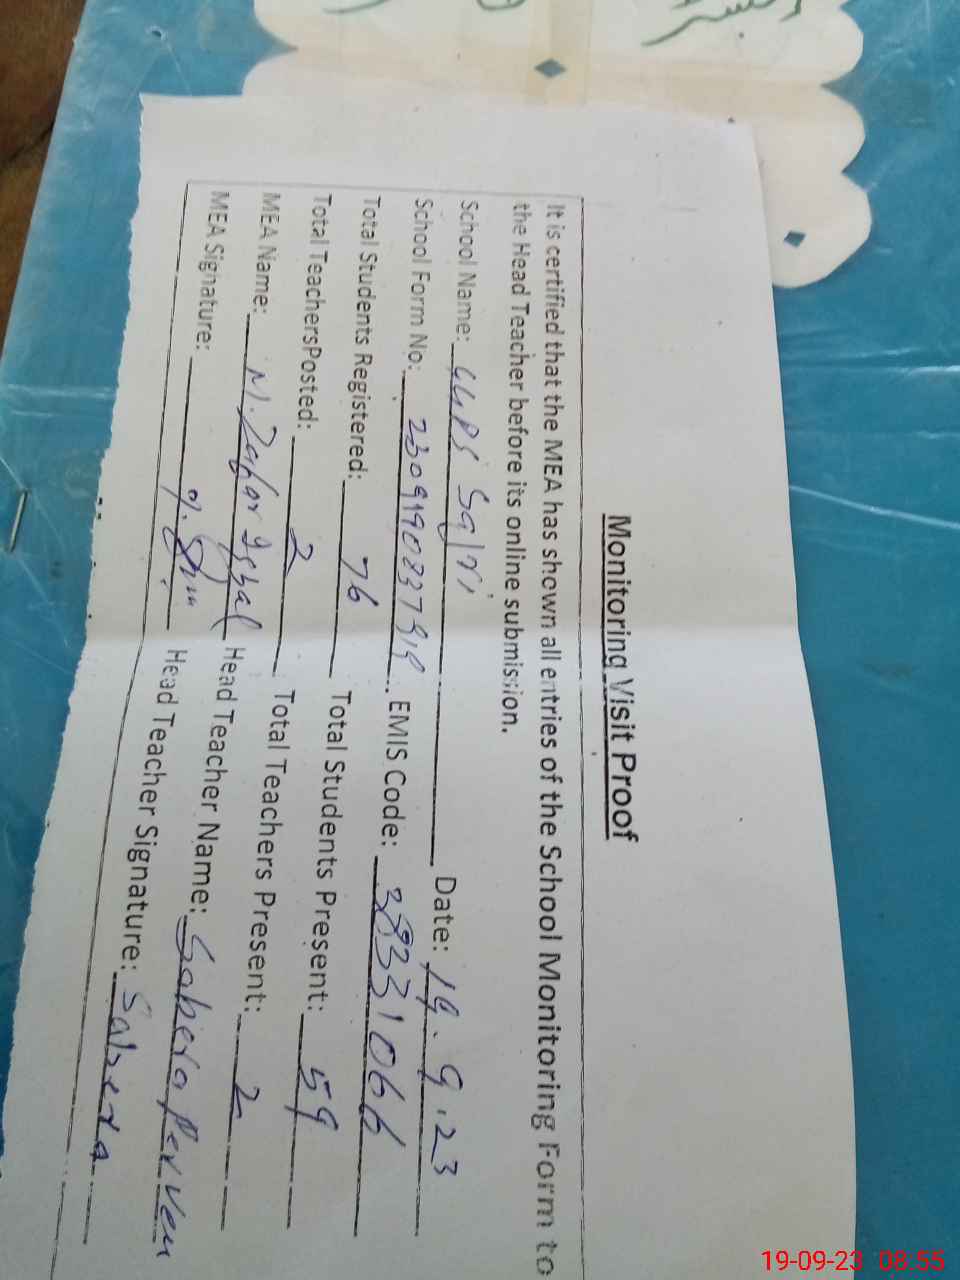 Monitoring Visit Proof
It is certified that the MEA has shown all entries of the School Monitoring Form to
the Head Teacher before its online submission.
School Name: GGPS Date: 19.9.23
School Form No: EMIS Code: 38331066
Total Students Registered: 76 Total Students Present: 59
Total TeachersPosted: 2 Total Teachers Present: 2
MEA Name: M. Zafar Iqbal Head Teacher Name: Sabera Perveen
MEA Signature: Head Teacher Signature: Sabera
19-09-23 08:55